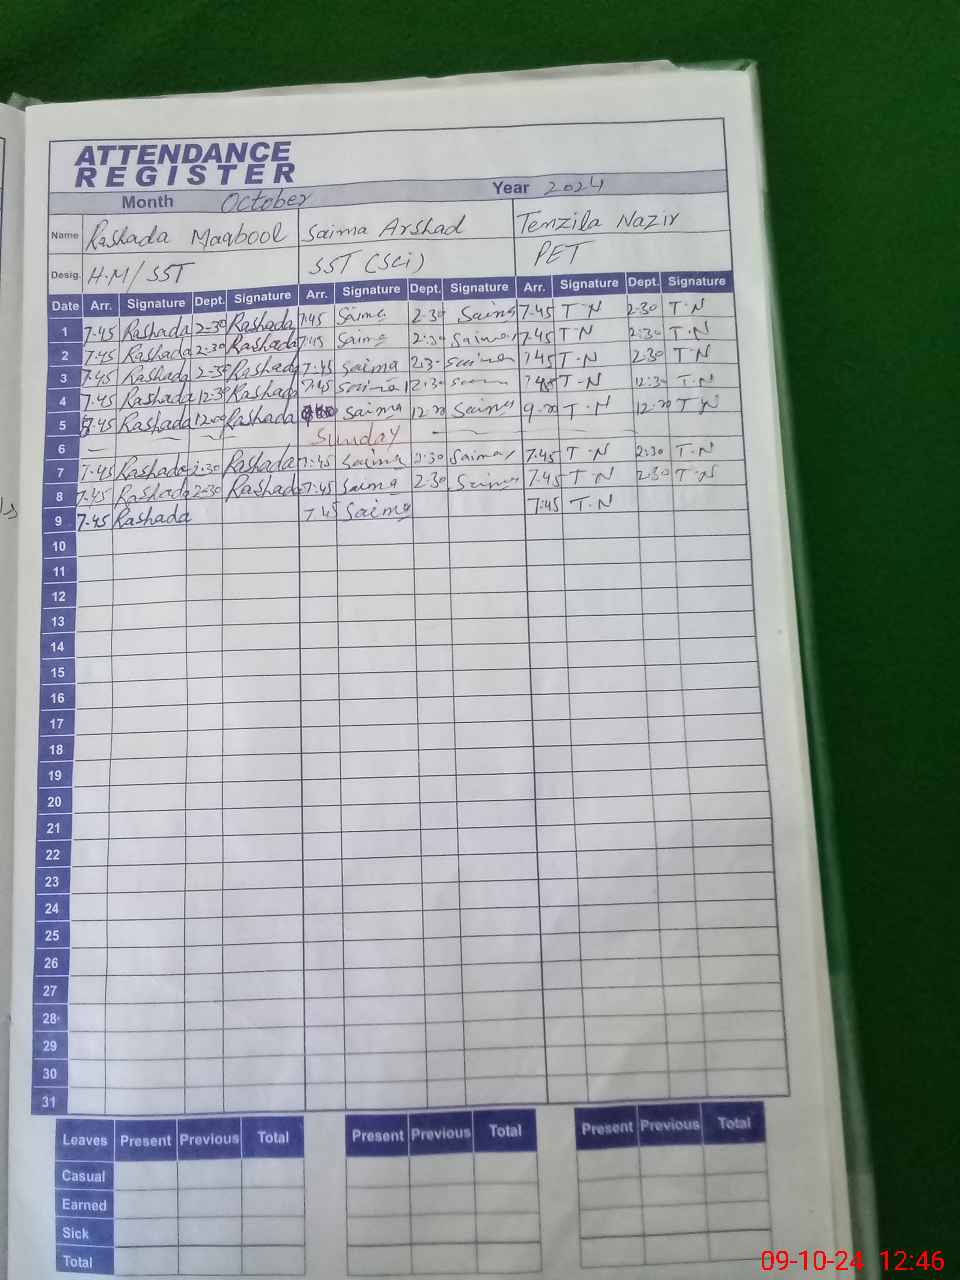 ATTENDANCE
REGISTER
Month October Year 2024
Name Rashada Maqbool Saima Arshad Tenzila Nazir
Desig. H.M/SST SST (Sci) PET
Date Arr. Signature Dept. Signature Arr. Signature Dept. Signature Arr. Signature Dept. Signature
1 7-45 Rashada 2-30 Rashada 7:45 Saima 2-30 Saima 7-45 T.N 2-30 T.N
2 7-45 Rashada 2-30 Rashada 7:45 Saima 2:30 Saima 7-45 T N 2:30 T.N
3 7-45 Rashada 2-30 Rashada 7-45 Saima 2:30 Saima 7:45 T-N 2-30 T.N
4 7-45 Rashada 12-30 Rashada 7:45 Saima 12:30 7:45 T-N 12:30 T.N
5 Rashada 12-00 Rashada Saima Saima T.N T N
6 Sunday
7 7-45 Rashada 2-30 Rashada 7:45 Saima 2:30 Saima 7.45 T.N 2:30 T.N
8 7-45 Rashada 2-30 Rashada 7-45 Saima 2-30 Saima 7-45 T.N 2-30 T.N
9 7-45 Rashada 7 45 Saima 7:45 T.N
10
11
12
13
14
15
16
17
18
19
20
21
22
23
24
25
26
27
28
29
30
31
Leaves Present Previous Total Present Previous Total Present Previous Total
Casual
Earned
Sick
Total
09-10-24 12:46